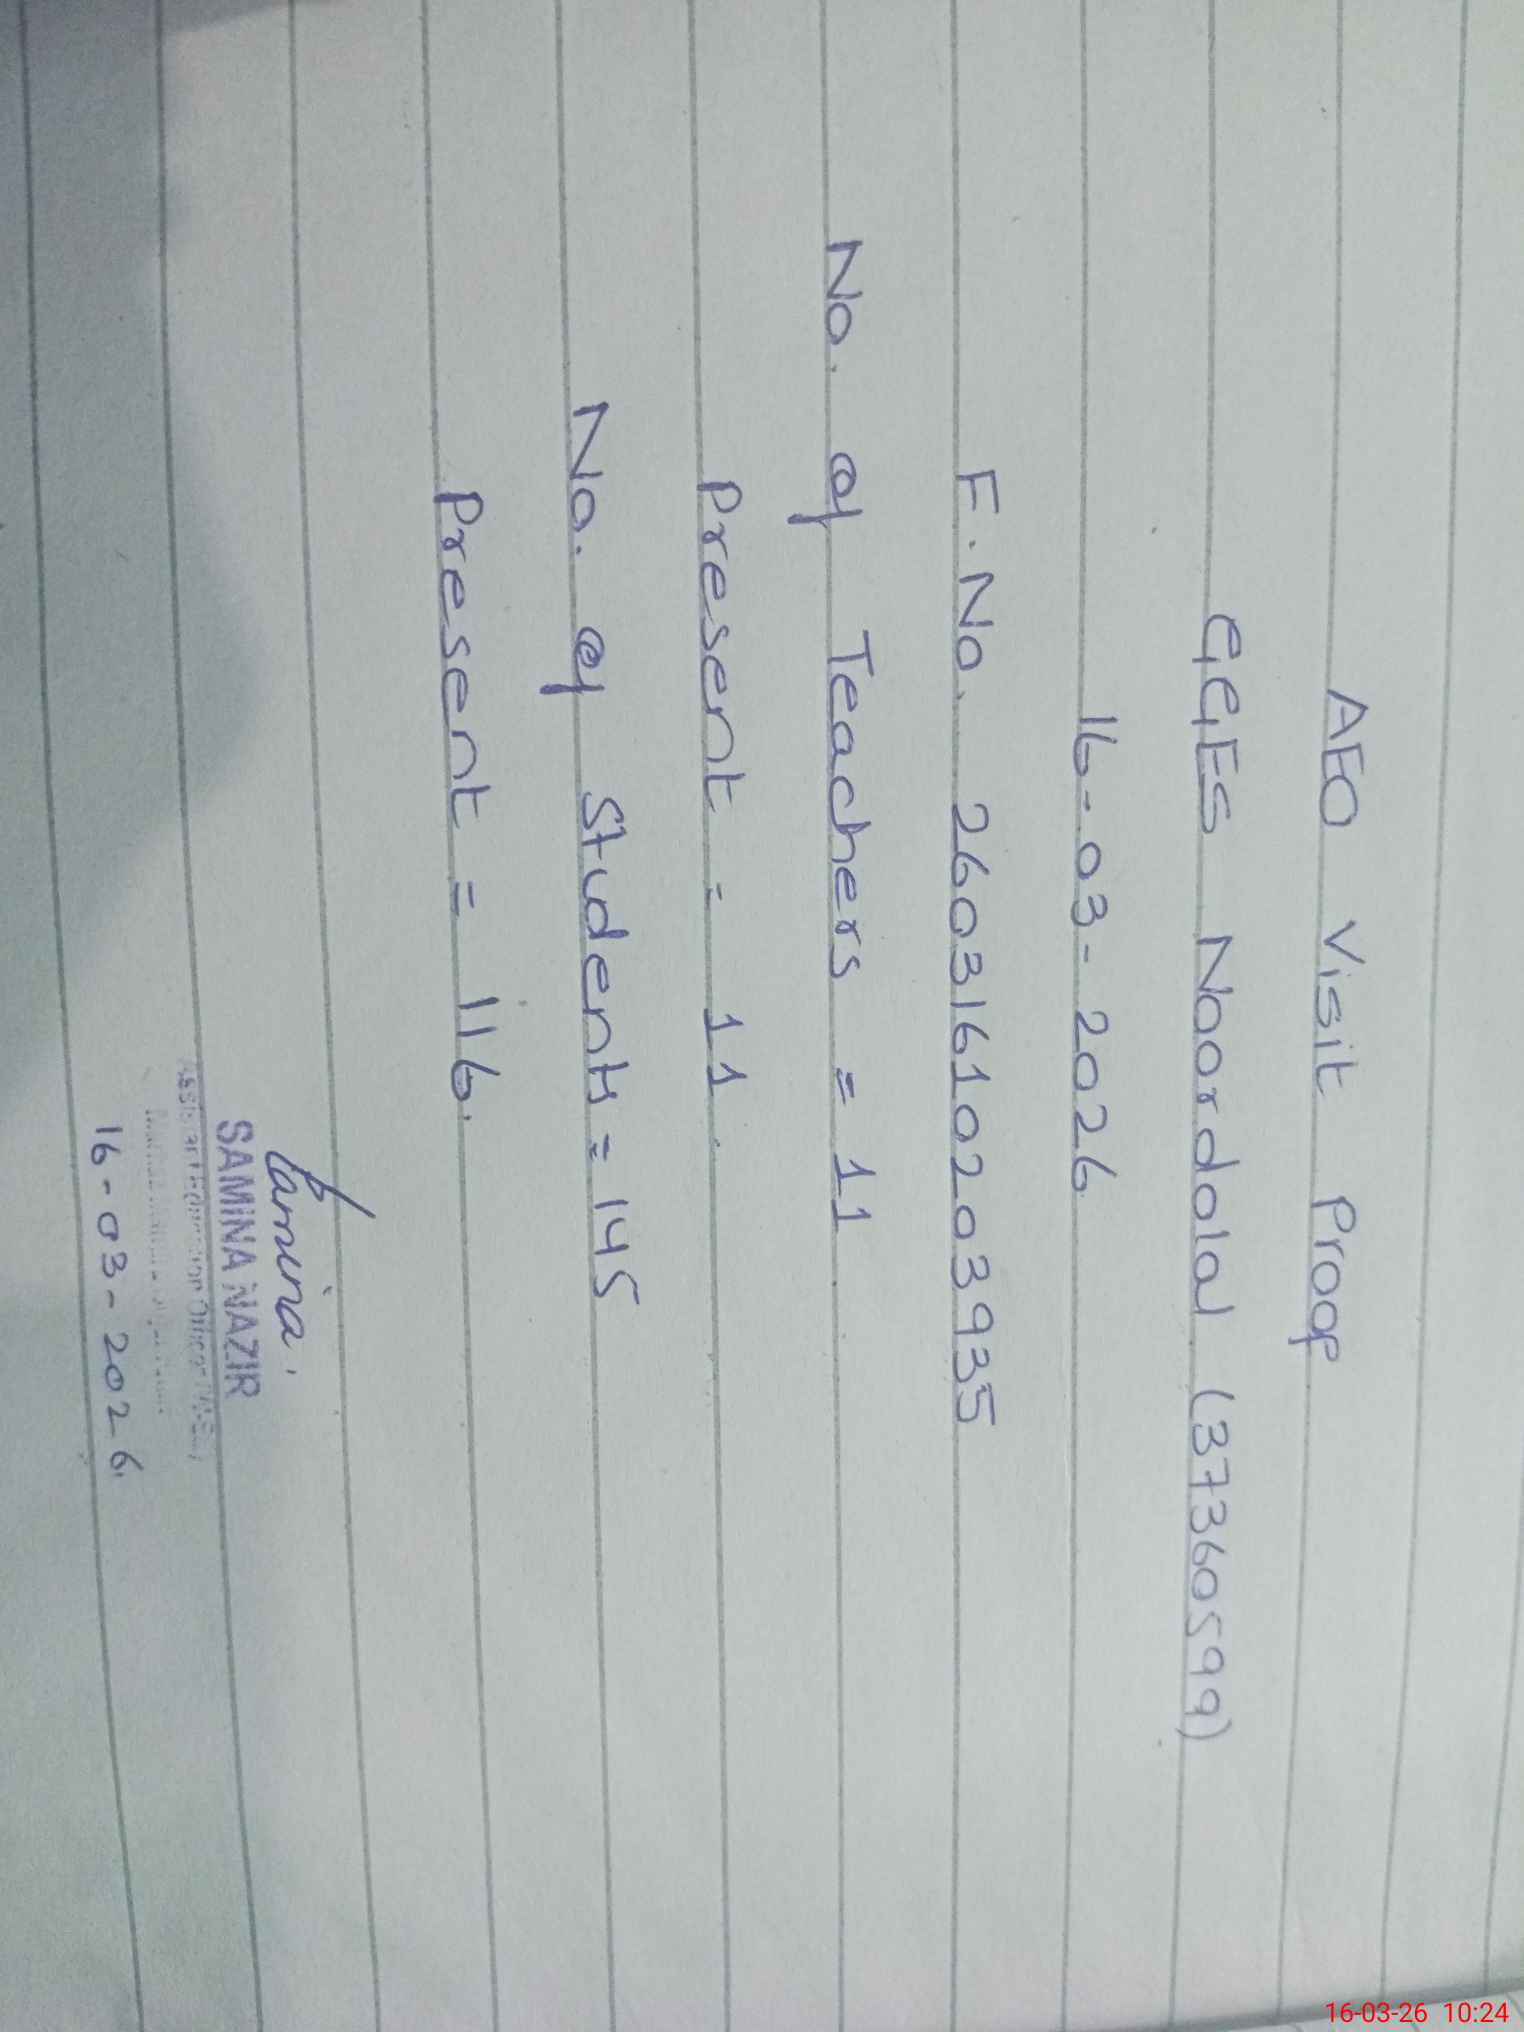 AEO Visit Proof
GGES Noordolal (37360599)
16-03-2026
F.No. 2603161020203935
No. of Teachers = 11
Present = 11.
No. of Students = 145
Present = 116.
Samina.
SAMINA NAZIR
Assistant Education Officer
16-03-2026.
16-03-26 10:24